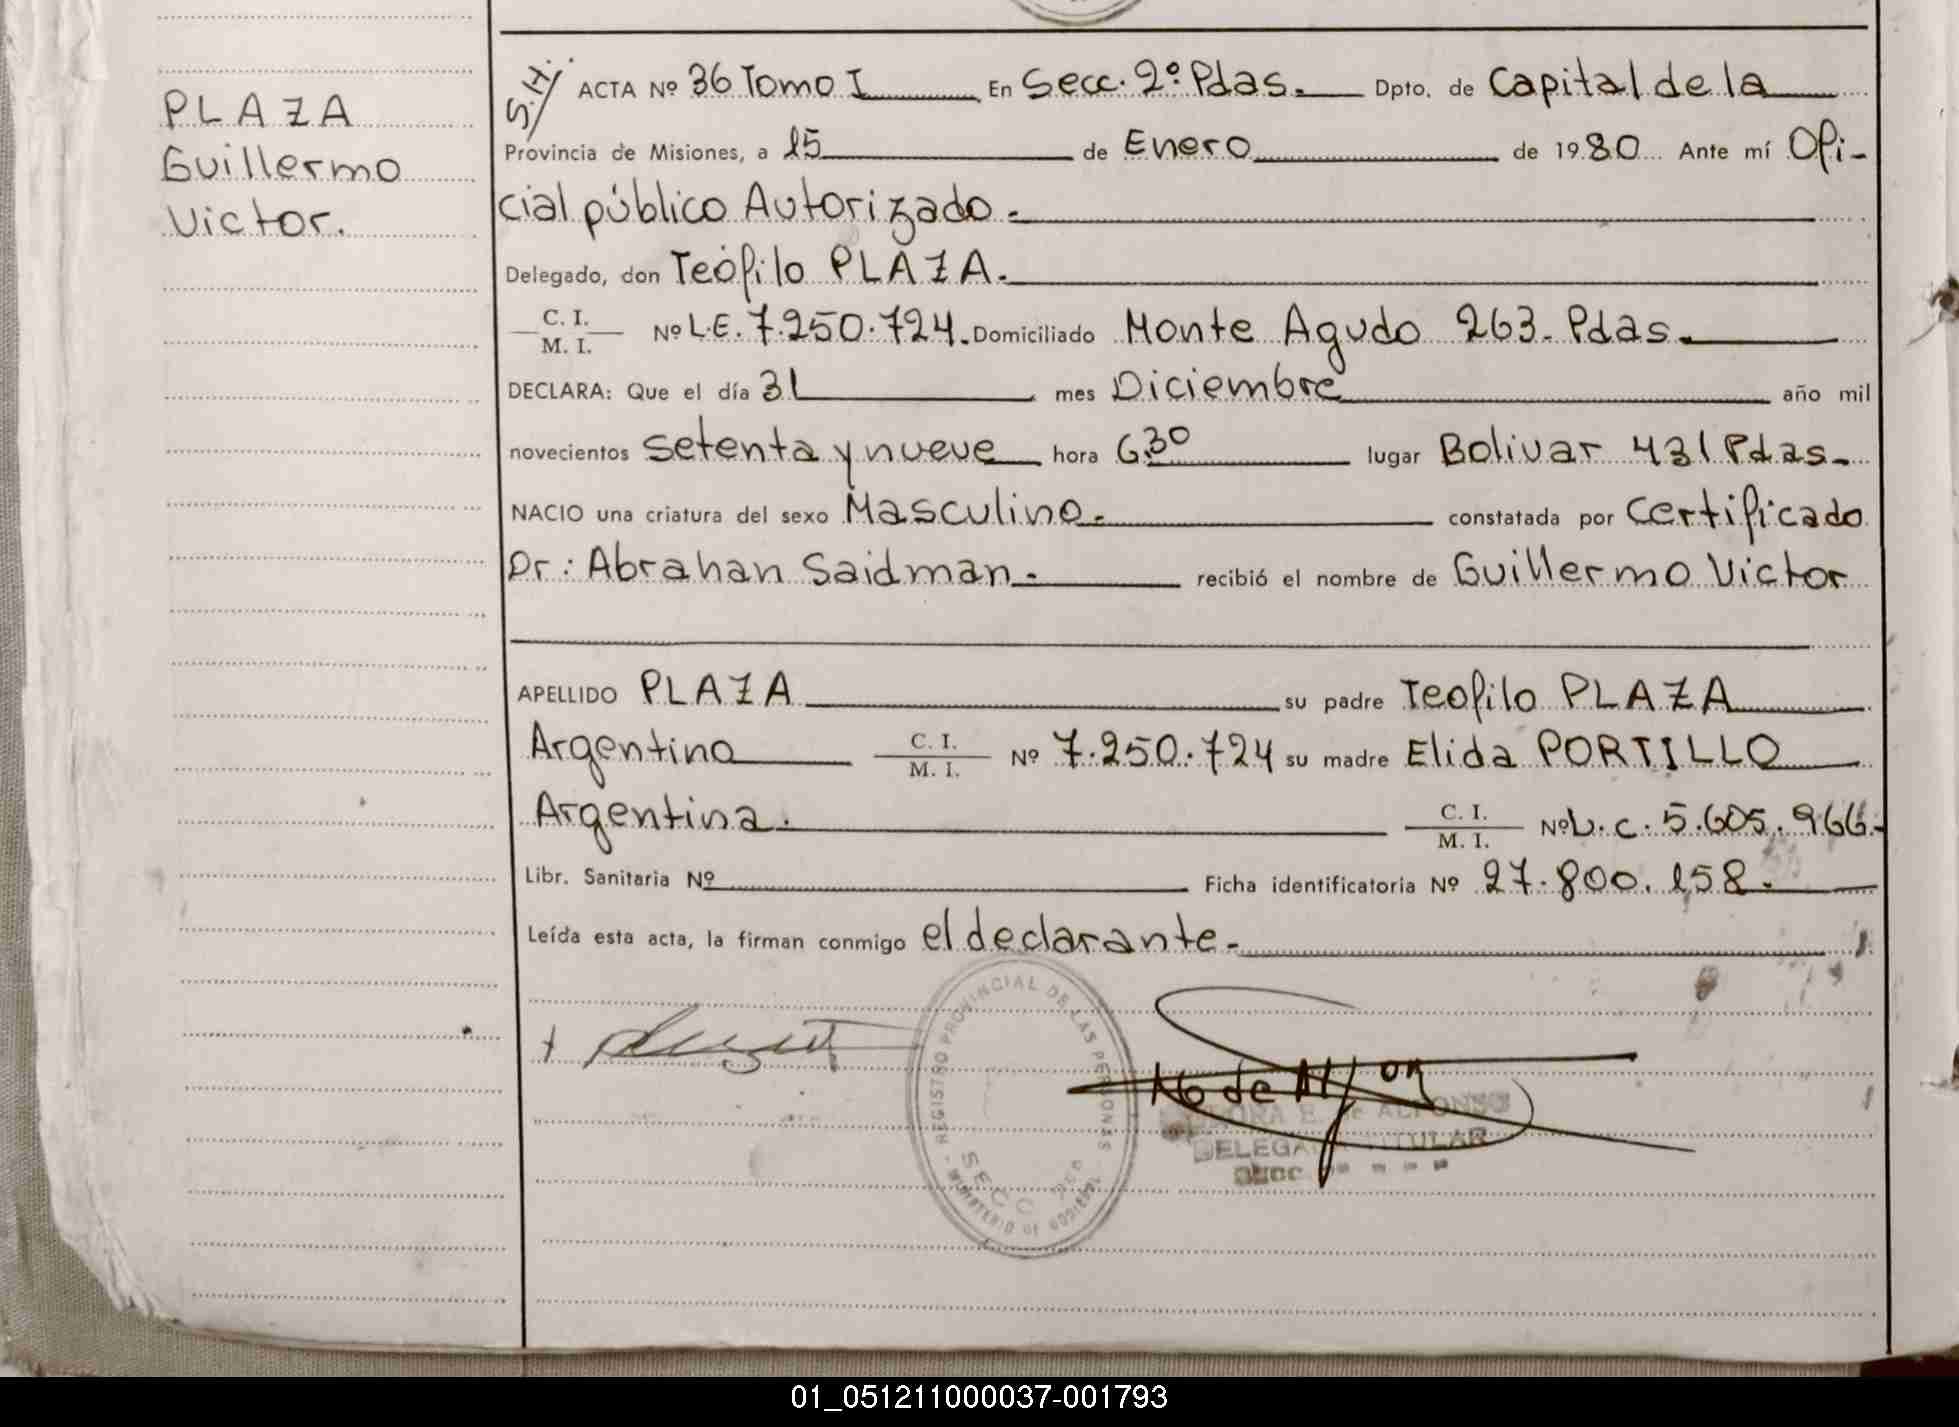 PLAZA
Guillermo
Victor.
S.H/.
ACTA Nº 36 Tomo I En Secc. 2º Pdas. Dpto. de Capital de la
Provincia de Misiones, a 15 de Enero de 1980 Ante mí Ofi-
cial público Autorizado.
Delegado, don Teófilo PLAZA.
C. I.
M. I. Nº L.E. 7.250.724. Domiciliado Monte Agudo 263- Pdas.
DECLARA: Que el día 31 mes Diciembre año mil
novecientos setenta y nueve hora 6.30 lugar Bolivar 431 Pdas.
NACIO una criatura del sexo Masculino. constatada por Certificado
Dr: Abrahan Saidman. recibió el nombre de Guillermo Victor
APELLIDO PLAZA su padre Teofilo PLAZA
Argentino C. I.
M. I. Nº 7.250.724 su madre Elida PORTILLO
Argentina. C. I.
M. I. Nº L.C. 5.605.966.
Libr. Sanitaria Nº Ficha identificatoria Nº 27.800.158.
Leída esta acta, la firman conmigo el declarante.
REGISTRO PROVINCIAL DE LAS PERSONAS
MINISTERIO DE GOBIERNO
SECC
E. de ALFONSO
DELEGADA TITULAR
01_051211000037-001793